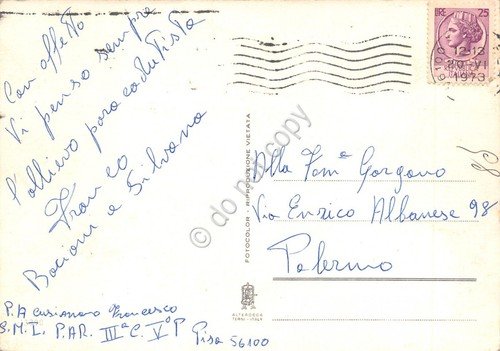 Con affetto
Vi penso sempre
l'allievo paracadutista
Franco
Bacioni a Silvana
P.A Francesco
S.M.I. PAR. IIIª C. Vº P Pisa 56100
LIRE 25
12-13
20 · VI
1973
Alla Famª Gorgano
Via Enrico Albanese 98
Palermo
FOTOCOLOR - RIPRODUZIONE VIETATA
ALTEROCCA
TERNI - ITALY
© do not copy